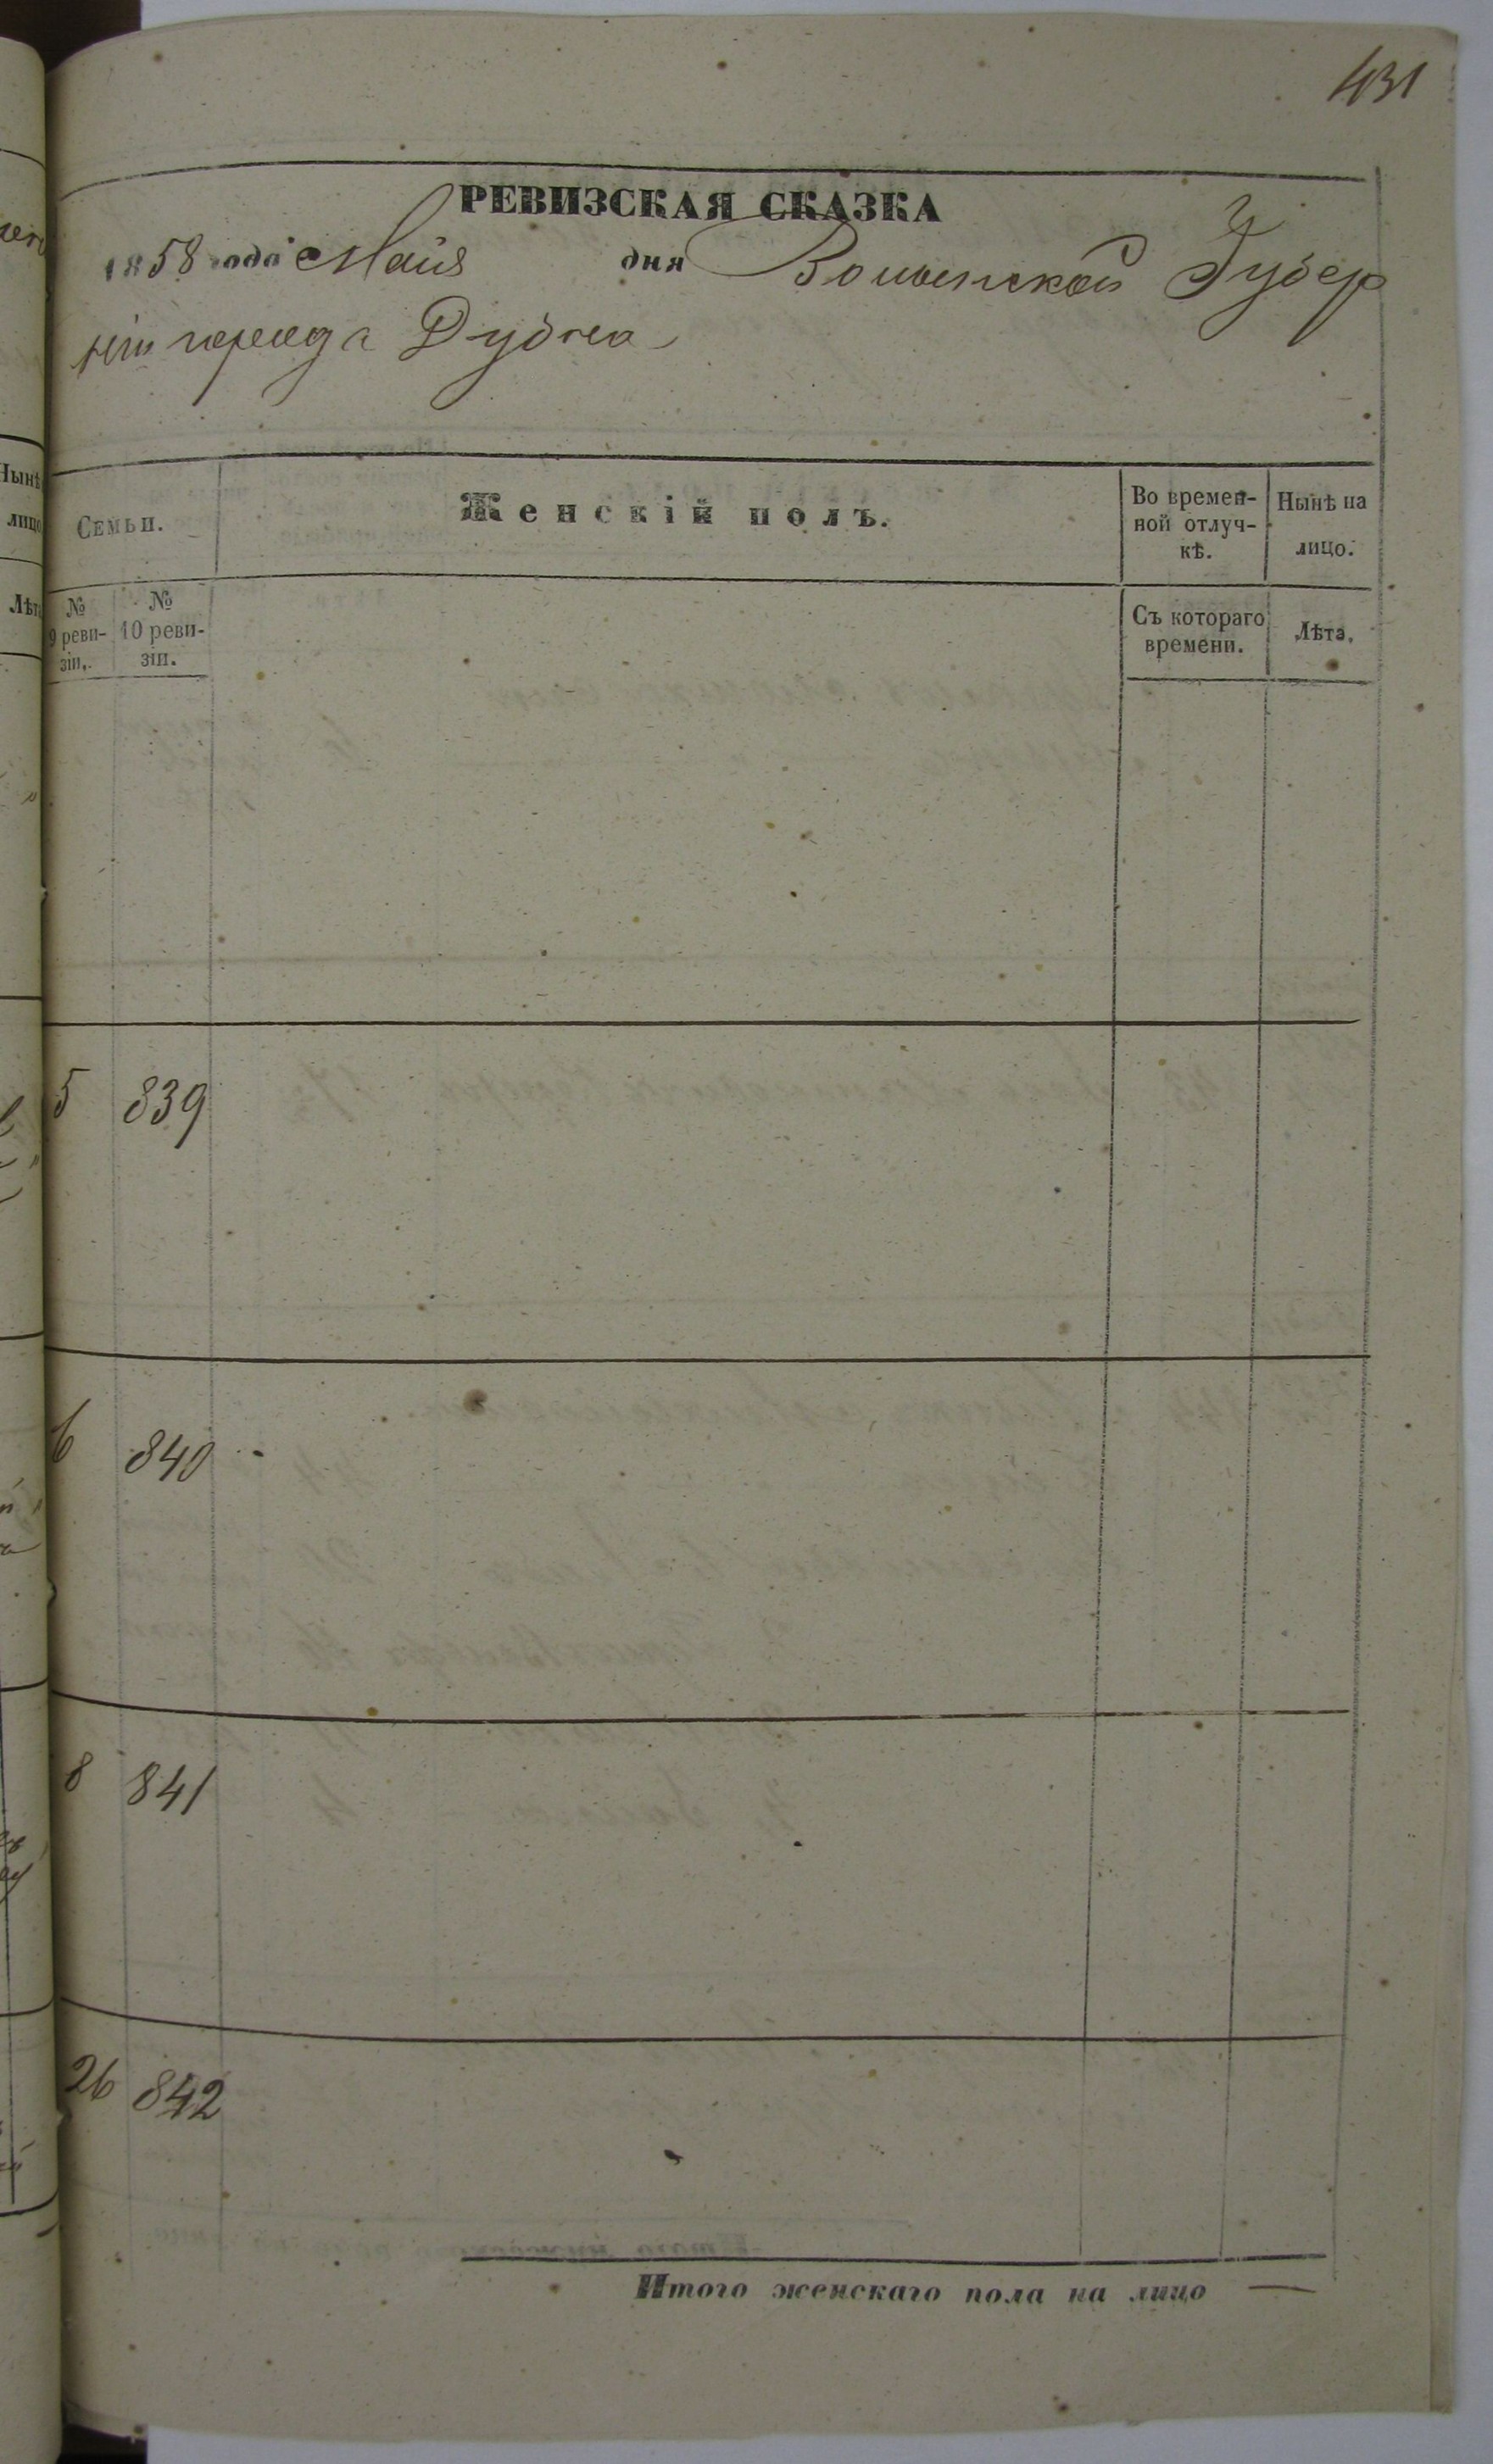 431
РЕВИЗСКАЯ СКАЗКА
1858 года Маія дня Волынской Губер
ніи города Дубна
Нынѣ
лицо
Лѣта
Семьи.
Женскій полъ.
Во времен-
ной отлуч-
кѣ.
Нынѣ на
лицо.
№
9 реви-
зіи.
№
10 реви-
зіи.
Съ котораго
времени.
Лѣта.
5 839
6 840
8 841
26 842
Итого женскаго пола на лицо —